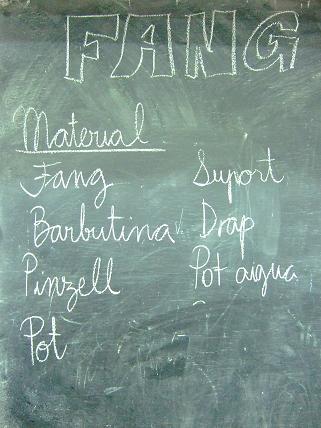 FANG
Material
Fang
Barbutina
Pinzell
Pot
Suport
Drap
Pot aigua